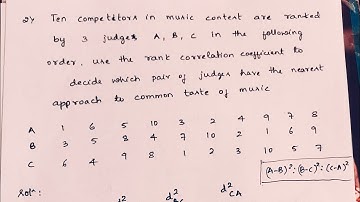 2) Ten competitors in music contest are ranked
by 3 judges A, B, C in the following
order, use the rank correlation coefficient to
decide which pair of judges have the nearest
approach to common taste of music
A 1 6 5 10 3 2 4 9 7 8
B 3 5 8 4 7 10 2 1 6 9
C 6 4 9 8 1 2 3 10 5 7
(A-B)²: (B-C)²: (C-A)²
Soln:
d² d² d²CA